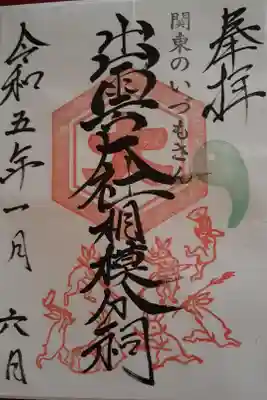 奉拝
関東のいづもさん
出雲大社相模分祠
令和五年一月六日